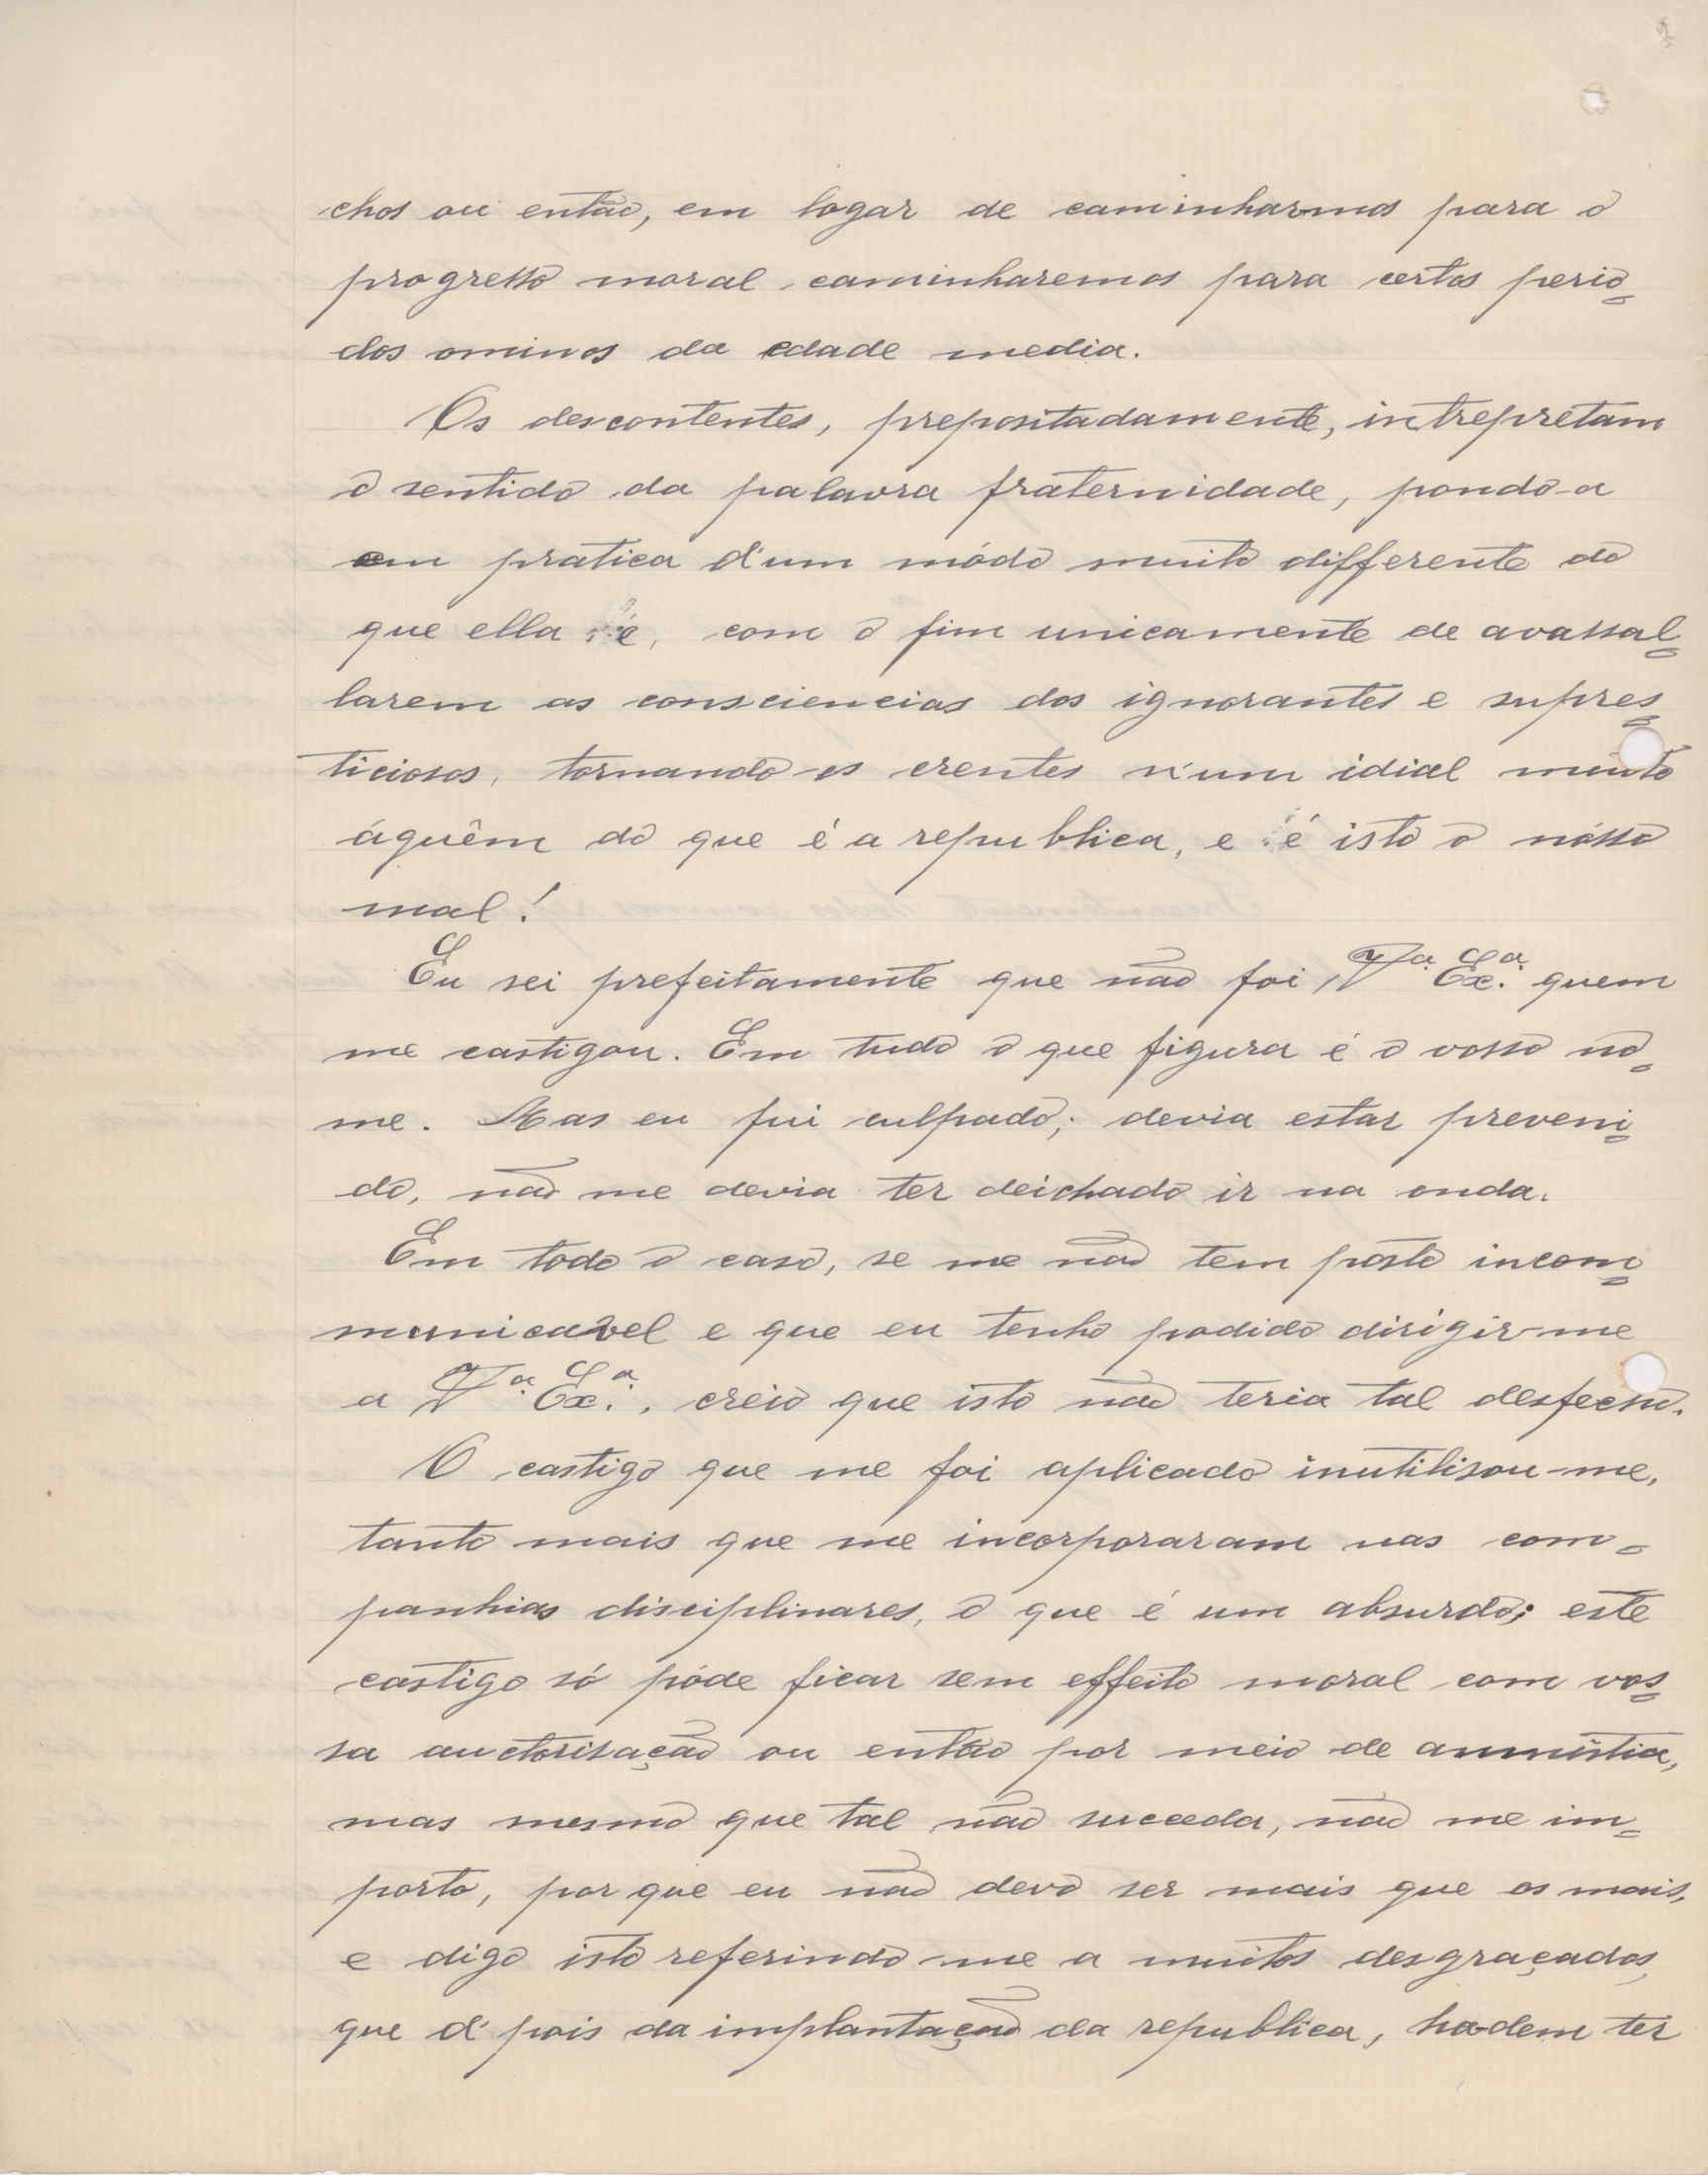 chos ou então, em logar de caminharmos para o
progresso moral caminharemos para certos perio-
dos ominos da edade media.
Os descontentes, prepositadamente, intrepretam
o sentido da palavra fraternidade, pondo-a
em pratica d'um módo muito differente do
que ella é, com o fim unicamente de avassal-
larem as consciencias dos ignorantes e supres-
ticiosos, tornando-os crentes n'um idial muito
águêm do que é a republica, e é isto o nósso
mal!
Eu sei prefeitamente que não foi V.ª Ex.ª quem
me castigou. Em tudo o que figura é o vosso no-
me. Mas eu fui culpado; devia estar preveni-
do, não me devia ter deichado ir na onda.
Em todo o caso, se me não tem posto incom-
municavel e que eu tenho podido dirigir-me
a V.ª Ex.ª, creio que isto não teria tal desfecho.
O castigo que me foi aplicado inutilisou-me,
tanto mais que me incorporaram nas com-
panhias disciplinares, o que é um absurdo; este
castigo só póde ficar sem effeito moral com vos-
sa auctorisação ou então por meio de amnistia,
mas mesmo que tal não succeda, não me im-
porto, por que eu não devo ser mais que os mais,
e digo isto referindo-me a muitos desgraçados,
que d'pois da implantação da republica, ha-dem ter